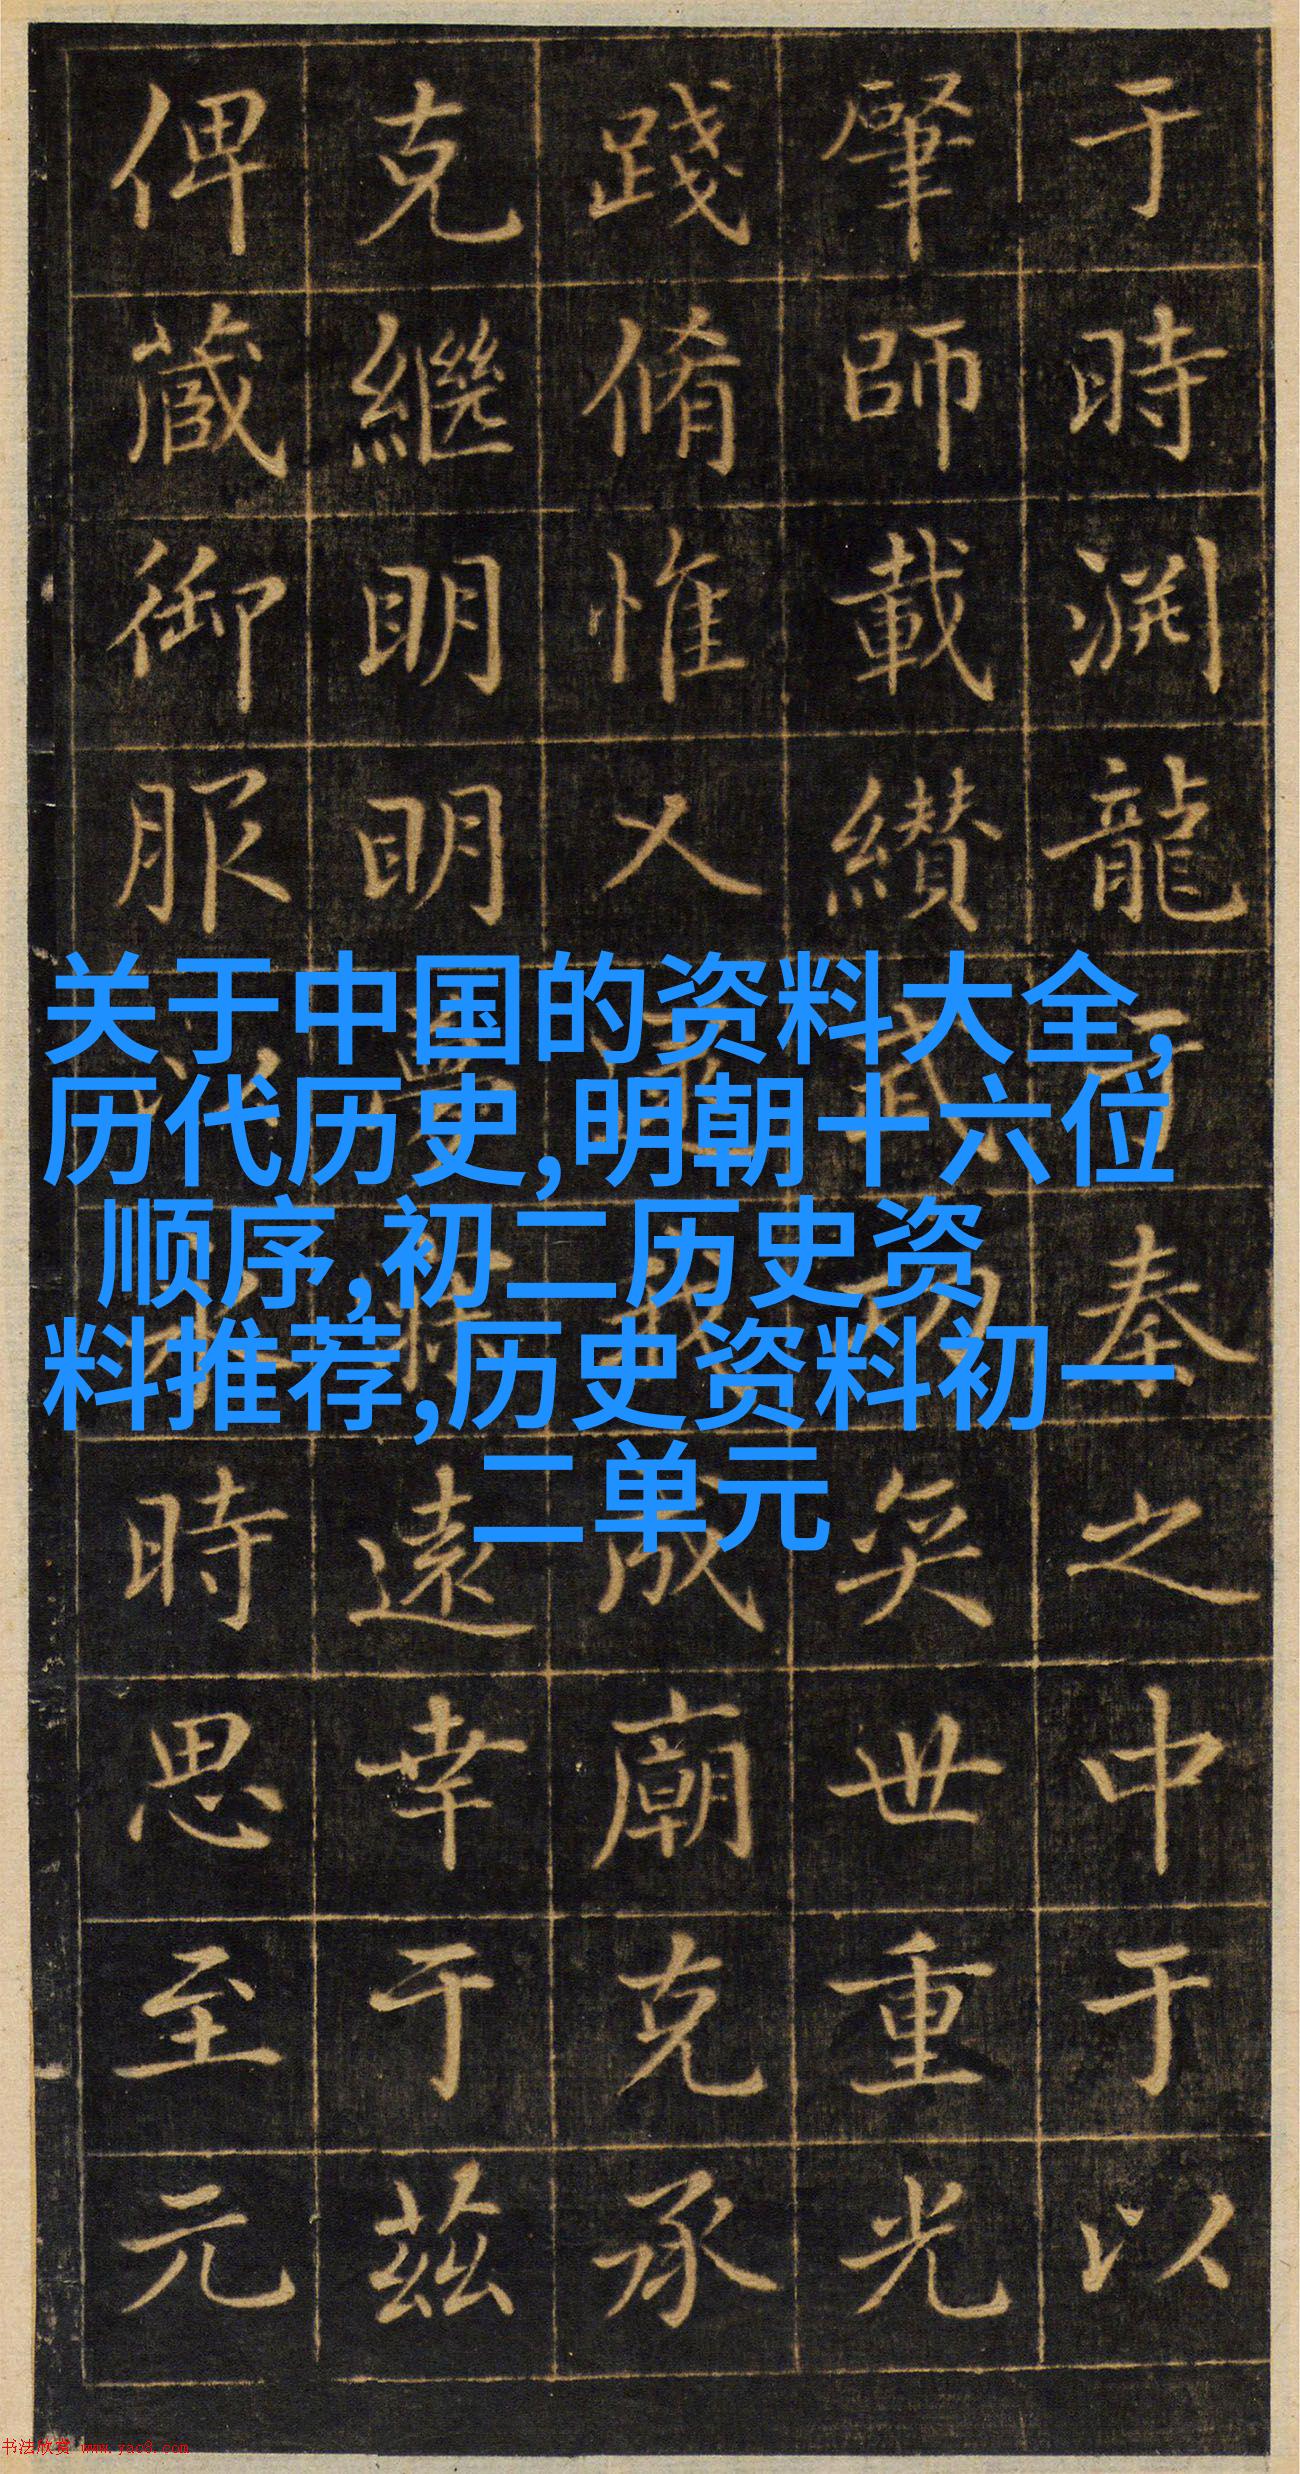 于時渊龍于秦之中于以
肇師載纘武功奕世重光
踐脩惟乂成廟克承
克繼明明遠幸于茲
俾藏御服時思至元
关于中国的资料大全,
历代历史,明朝十六位
顺序,初二历史资
料推荐,历史资料初一
二单元
书法欣赏 www.yac8.com